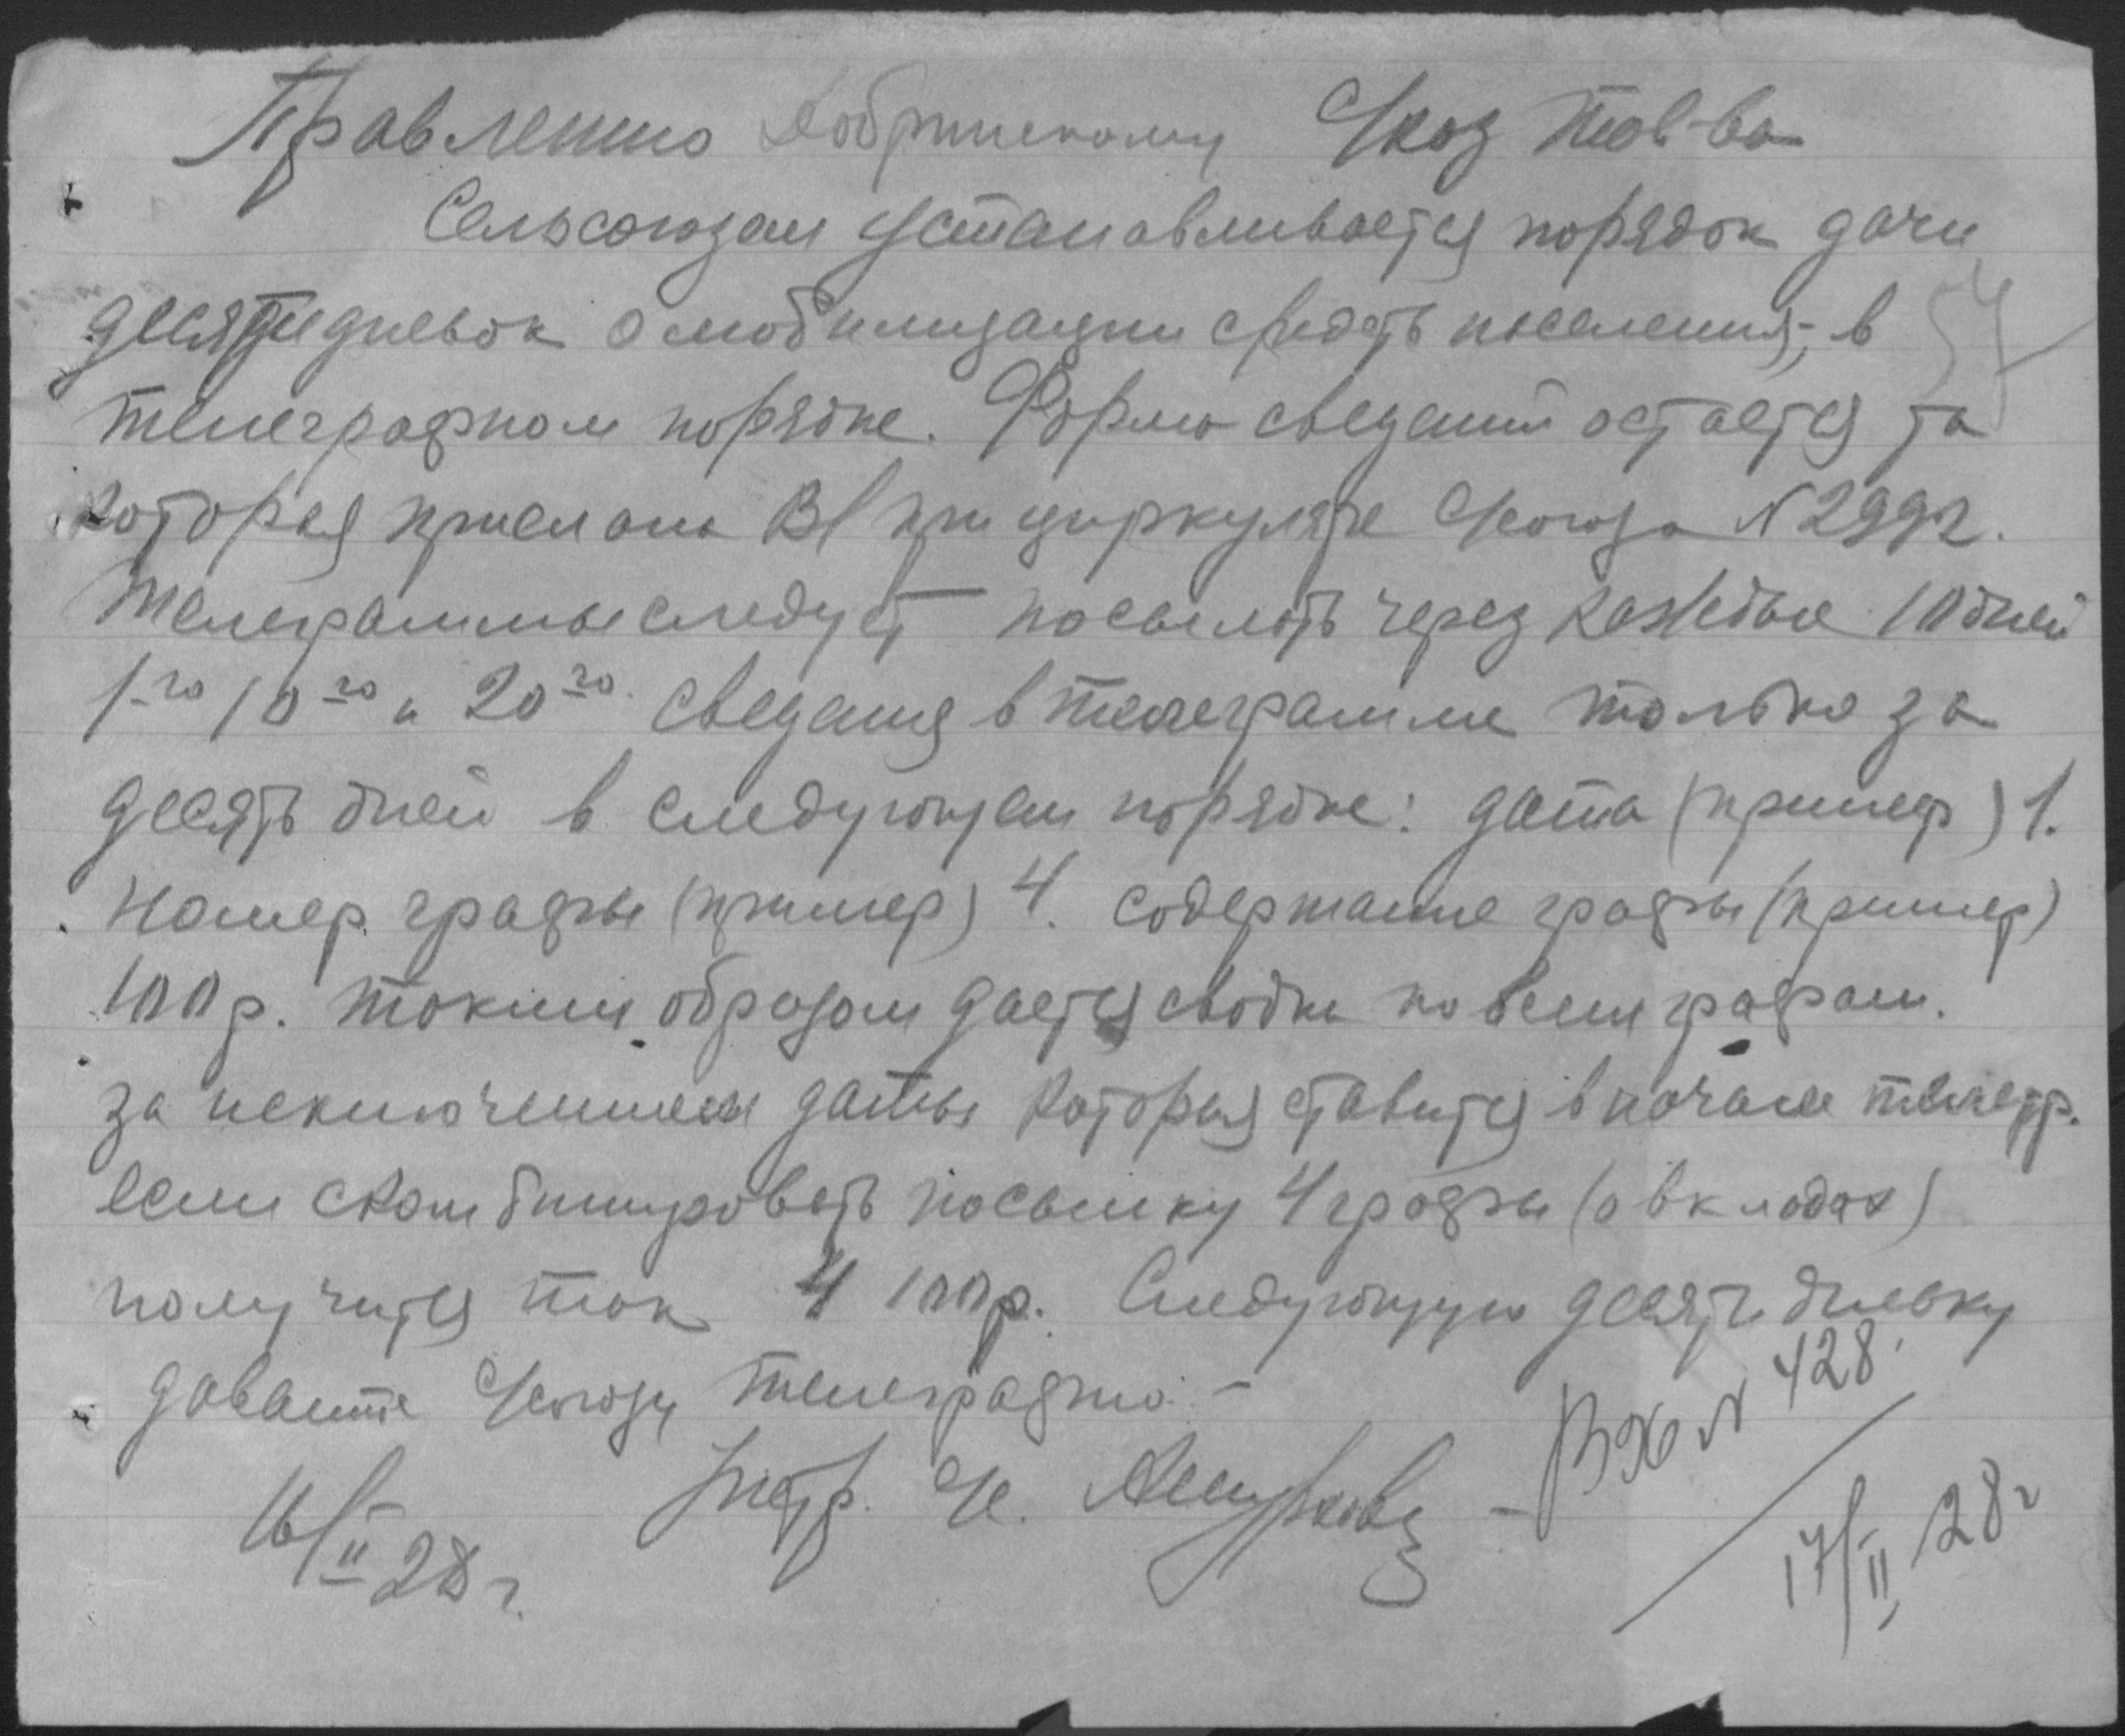 Правлению Добринскому С/хоз тов-ва
Сельсоюзом устанавливается порядок дачи
десятидневок о мобилизации средств населения, в
телеграфном порядке. Форма сведений остается та
которая прислана В/ при циркуляре С/союза N 2992.
Телеграммы следует посылать через каждые 10 дней
1-го 10-го и 20-го. сведения в телеграмме только за
десять дней в следующем порядке: дата (пример) 1.
Номер графы (пример) 4. содержание графы (пример)
100 р. Таким образом дается сводка по всем графам.
за исключением даты которая ставится в начале телегр.
если скомбинировать посылку 4 графы (о вкладах)
получится так 4 100 р. Следующую десятидневку
давайте С/союзу телеграфно. -
Инстр. С/с.
16/II 28 г.
Вх N 428.
17/II 28 г